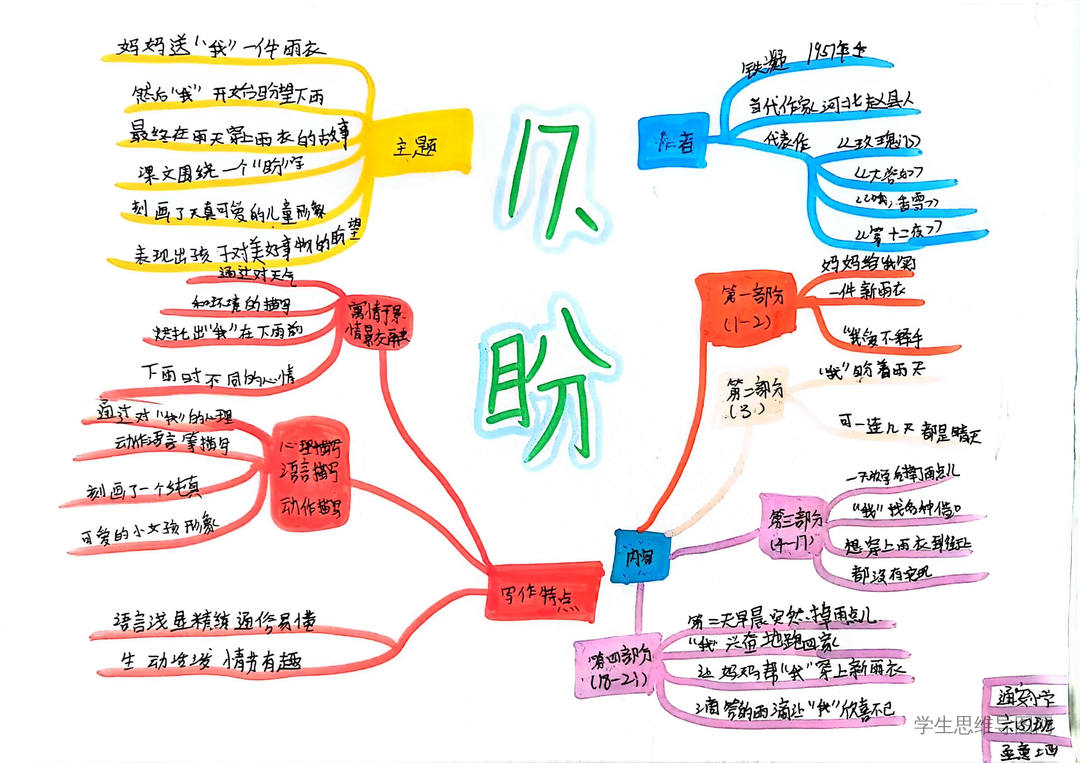 17、
盼
主题
妈妈送“我”一件雨衣
然后“我”开始盼望下雨
最终在雨天穿上雨衣的故事
课文围绕一个“盼”字
刻画了天真可爱的儿童形象
表现出孩子对美好事物的盼望
作者
铁凝 1957年生
当代作家河北赵县人
代表作
《玫瑰门》
《大浴女》
《哦，香雪》
《第十二夜》
寓情于景
情景交融
通过对天气
和环境的描写
烘托出“我”在下雨前
下雨时不同的心情
心理描写
语言描写
动作描写
通过对“我”的心理
动作语言等描写
刻画了一个纯真
可爱的小女孩形象
写作特点
语言浅显精练通俗易懂
生动活泼 情势有趣
内容
第一部分
(1-2)
妈妈给我买
一件新雨衣
“我爱不释手
第二部分
(3)
“我”盼着雨天
可一连几天都是晴天
第三部分
(4-17)
一天放学后掉了雨点儿
“我”找各种借口
想穿上雨衣到街上
都没有实现
第四部分
(18-21)
第二天早晨突然掉雨点儿
“我”兴奋地跑回家
让妈妈帮“我”穿上新雨衣
滴答的雨滴让“我”欣喜不已
通安小学
学生思维导图